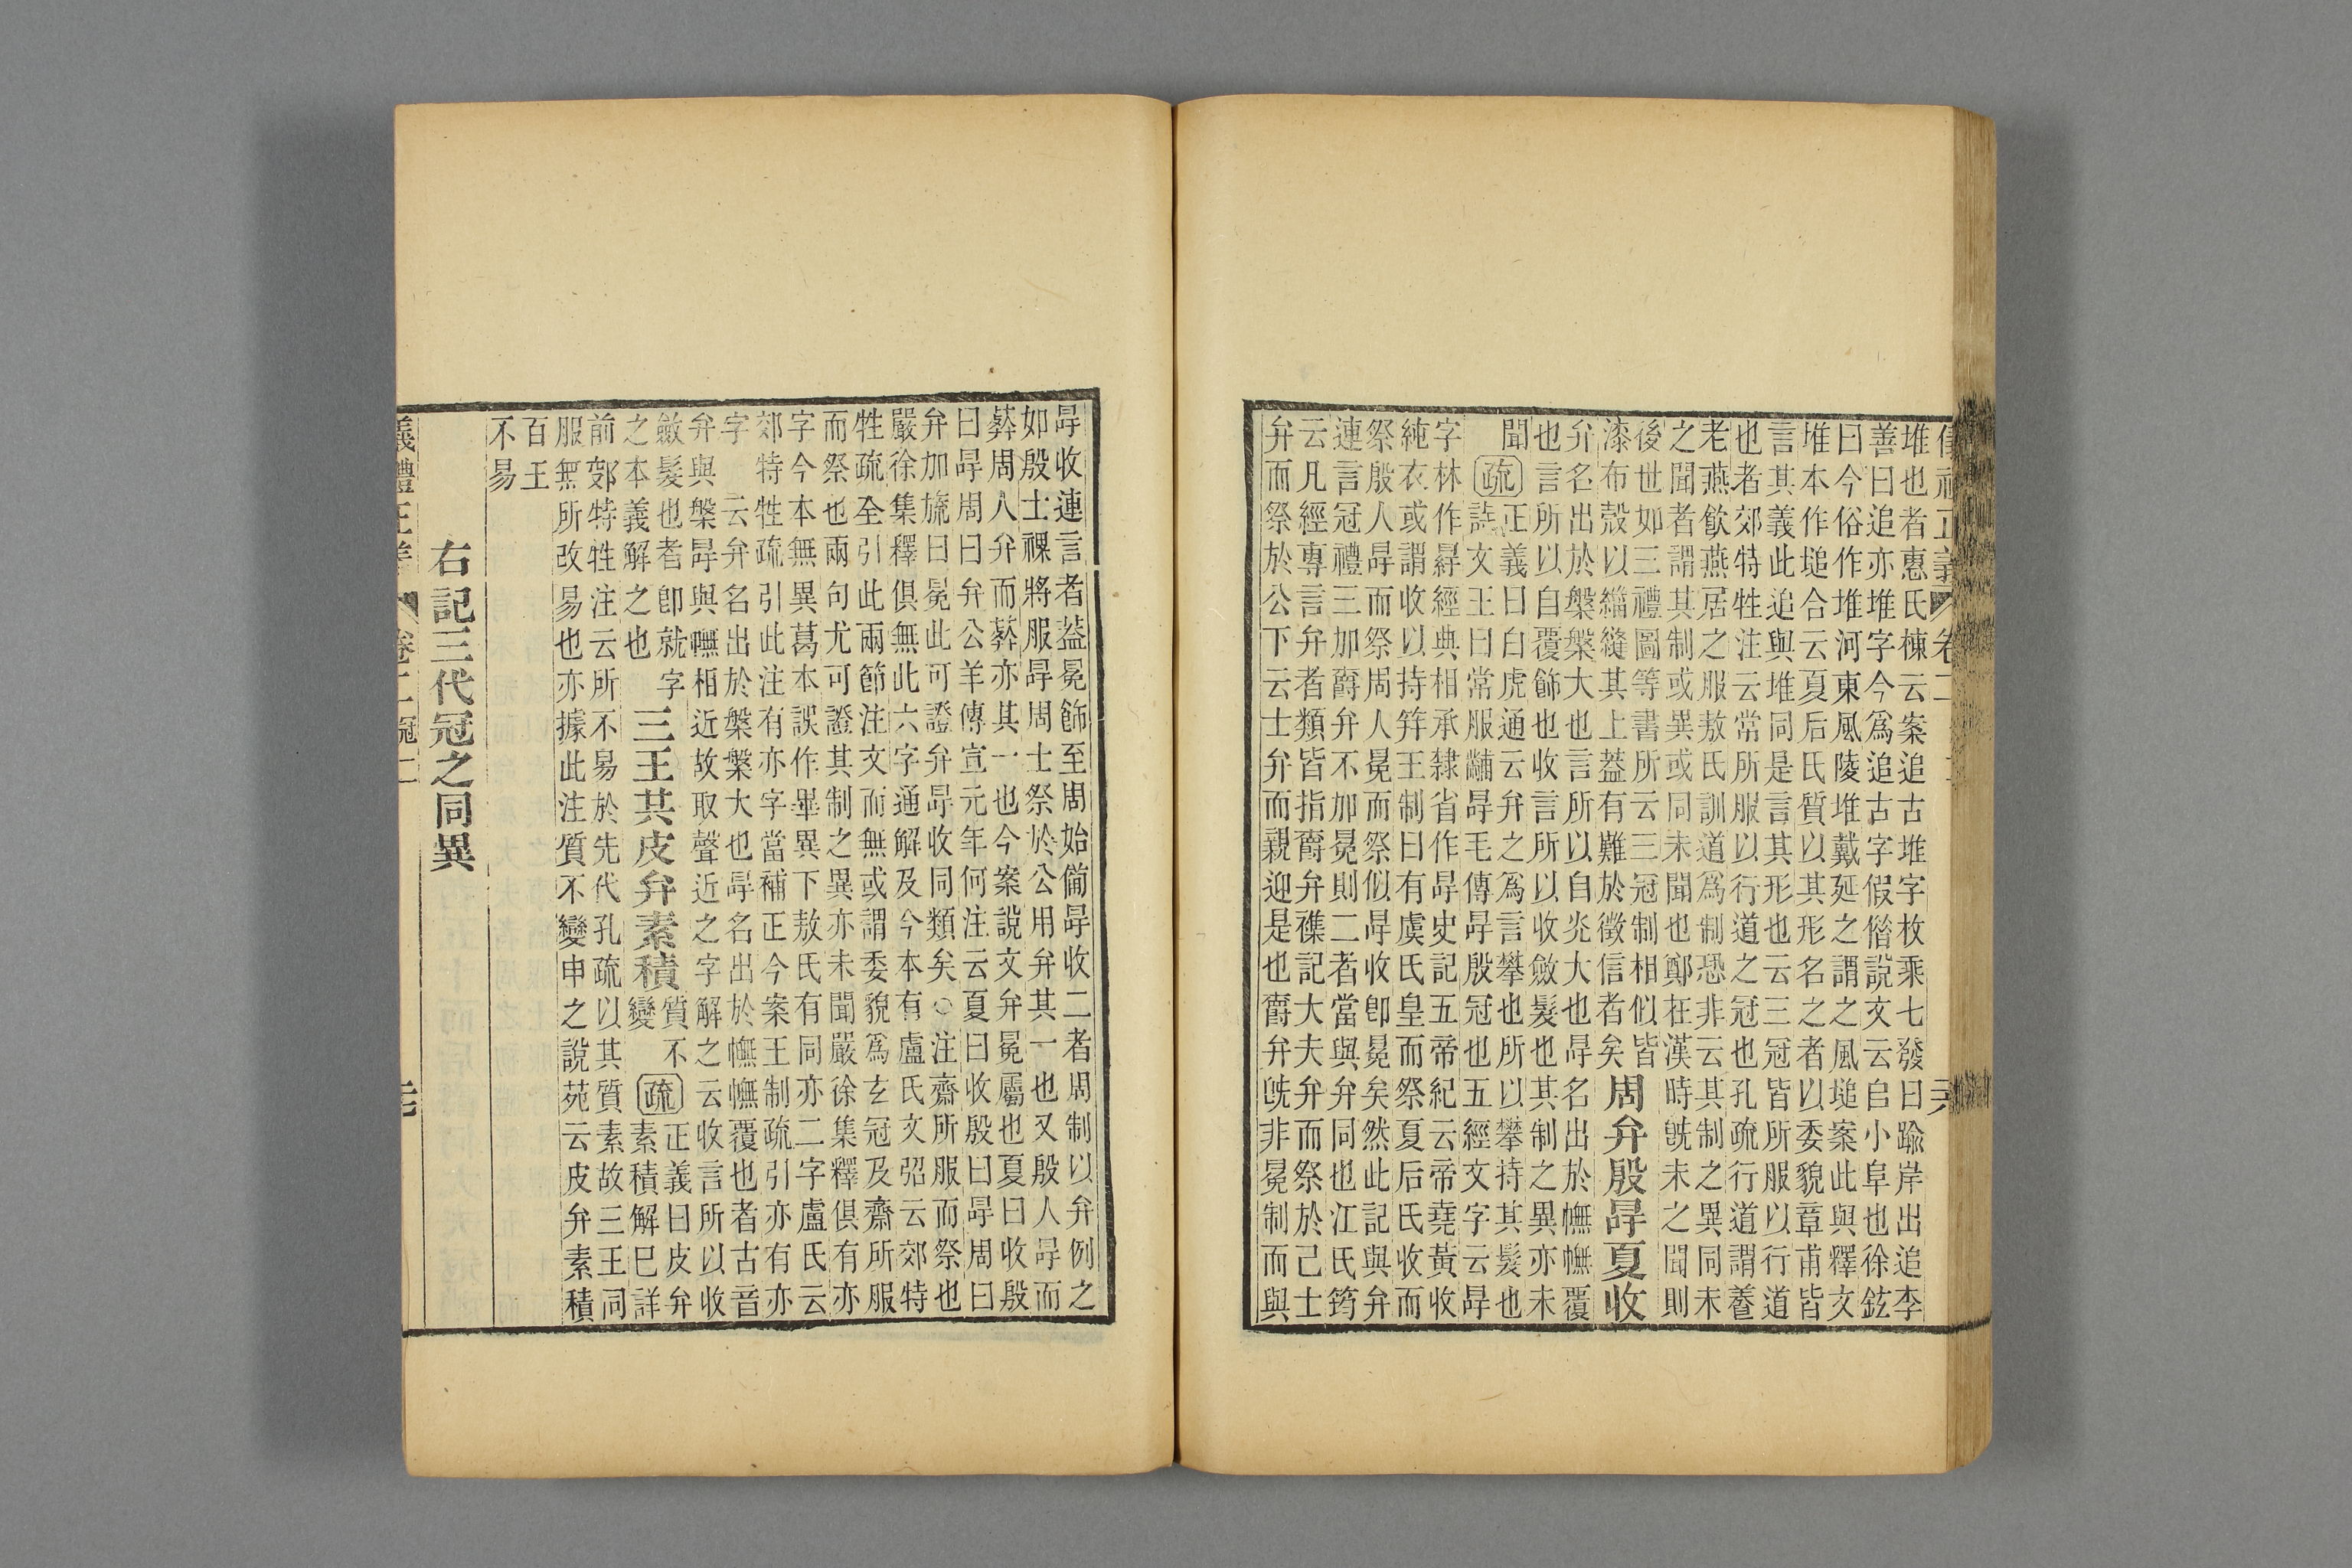 儀禮正義 卷二
堆也者惠氏棟云案追古堆字枚乘七發曰踰岸出追李
善曰追亦堆字今爲追古字假偺說文云𠂤小阜也徐鉉
曰今俗作堆河東風陵堆戴延之謂之風塠案此與釋文
堆本作塠合云夏后氏質以其形名之者以委貌章甫皆
言其義此追與堆同是言其形也云三冠皆所服以行道
也者郊特牲注云常所服以行道之冠也孔疏行道謂養
老燕飮燕居之服敖氏訓道爲制恐非云其制之異同未
之聞者謂其制或異或同未聞也鄭在漢時旣未之聞則
後世如三禮圖等書所云三冠制相似皆
漆布殼以緇縫其上蓋有難於徵信者矣
周弁殷冔夏收
弁名出於槃槃大也言所以自炗大也冔名出於幠幠覆
也言所以自覆飾也收言所以收斂髮也其制之異亦未
聞
疏
正義曰白虎通云弁之爲言攀也所以攀持其髮也
詩文王曰常服黼冔毛傳冔殷冠也五經文字云冔
字林作冔經典相承隸省作冔史記五帝紀云帝堯黃收
純衣或謂收以持笄王制曰有虞氏皇而祭夏后氏收而
祭殷人冔而祭周人冕而祭似冔收卽冕矣然此記與弁
連言冠禮三加爵弁不加冕則二者當與弁同也江氏筠
云凡經專言弁者類皆指爵弁襍記大夫弁而祭於己士
弁而祭於公下云士弁而親迎是也爵弁旣非冕制而與
冔收連言者葢冕飾至周始備冔收二者周制以弁例之
如殷士祼將服冔周士祭於公用弁其一也又殷人冔而
葬周人弁而葬亦其一也今案說文弁冕屬也夏曰收殷
曰冔周曰弁公羊傳宣元年何注云夏曰收殷曰冔周曰
弁加旒曰冕此可證弁冔收同類矣○注齋所服而祭也
嚴徐集釋俱無此六字通解及今本有盧氏文弨云郊特
牲疏全引此兩節注文而無或謂委貌爲玄冠及齋所服
而祭也兩句尤可證其制之異亦未聞嚴徐集釋俱有亦
字今本無異葛本誤作畢異下敖氏有同亦二字盧氏云
郊特牲疏引此注有亦字當補正今案王制疏引亦有亦
字 云弁名出於槃槃大也冔名出於幠幠覆也者古音
弁與槃冔與幠相近故取聲近之字解之云收言所以收
斂髮也者卽就字
之本義解之也
三王其皮弁素積
質不
變
疏
正義曰皮弁
素積解巳詳
前郊特牲注云所不易於先代孔疏以其質素故三王同
服無所改易也亦據此注質不變申之說苑云皮弁素積
百王
不易
右記三代冠之同異